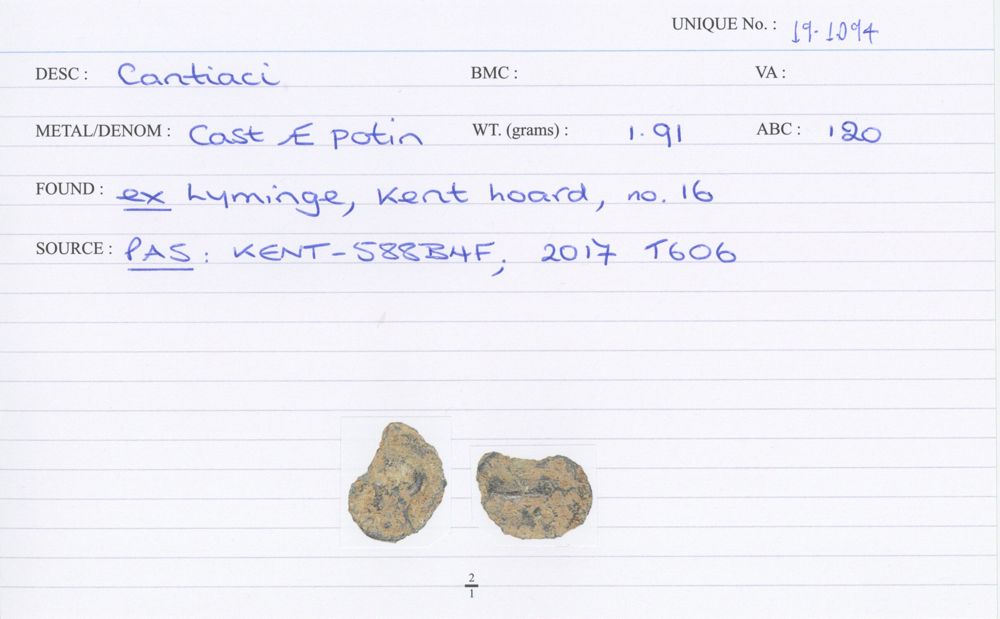 UNIQUE No. : 19-1094
DESC : Cantiaci BMC : VA :
METAL/DENOM : Cast Æ potin WT. (grams) : 1.91 ABC : 120
FOUND : ex Lyminge, Kent hoard, no. 16
SOURCE : PAS: KENT-588B4F; 2017 T606
2
1